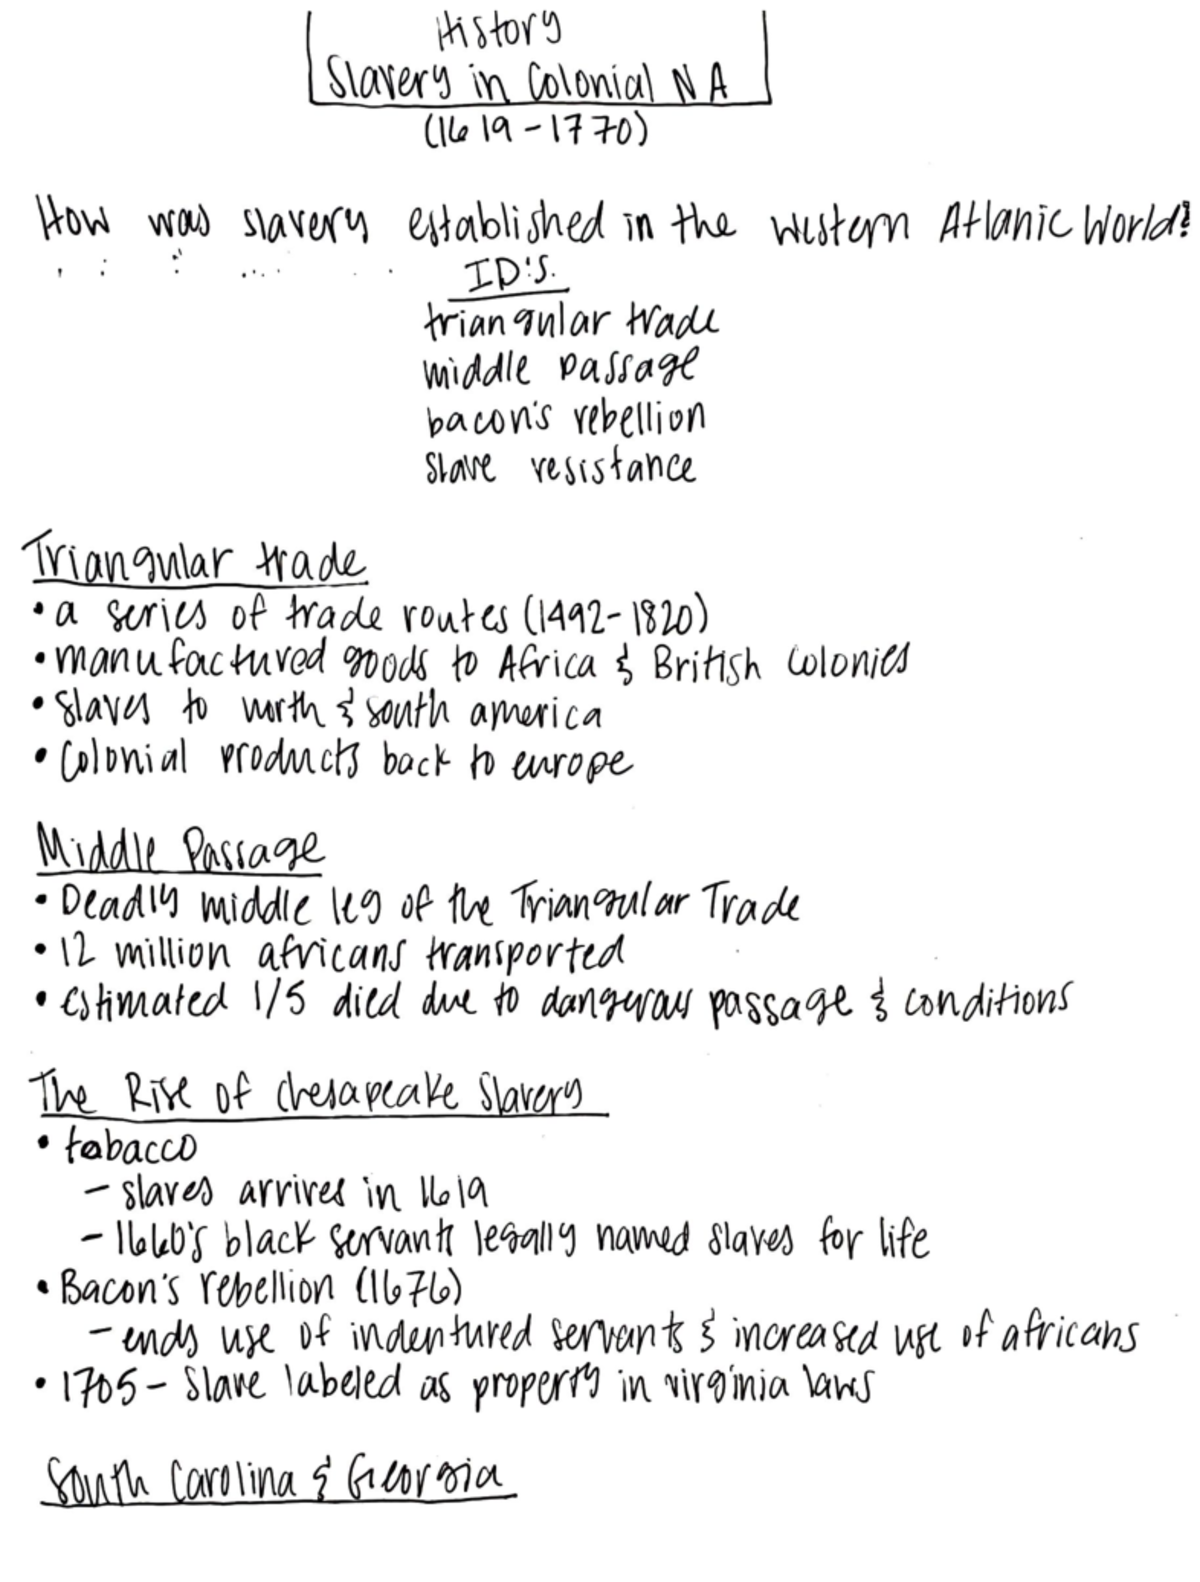 History
Slavery in Colonial NA
(1619-1770)
How was slavery established in the western Atlanic World?
ID's.
triangular trade
middle passage
bacon's rebellion
slave resistance
Triangular trade
• a series of trade routes (1492-1820)
• manufactured goods to Africa & British colonies
• slaves to north & south america
• Colonial products back to europe
Middle Passage
• Deadly middle leg of the Triangular Trade
• 12 million africans transported
• estimated 1/5 died due to dangerous passage & conditions
The Rise of Chesapeake Slavery
• tobacco
- slaves arrives in 1619
- 1660's black servants legally named slaves for life
• Bacon's rebellion (1676)
- ends use of indentured servants & increased use of africans
• 1705 - Slave labeled as property in virginia laws
South Carolina & Georgia